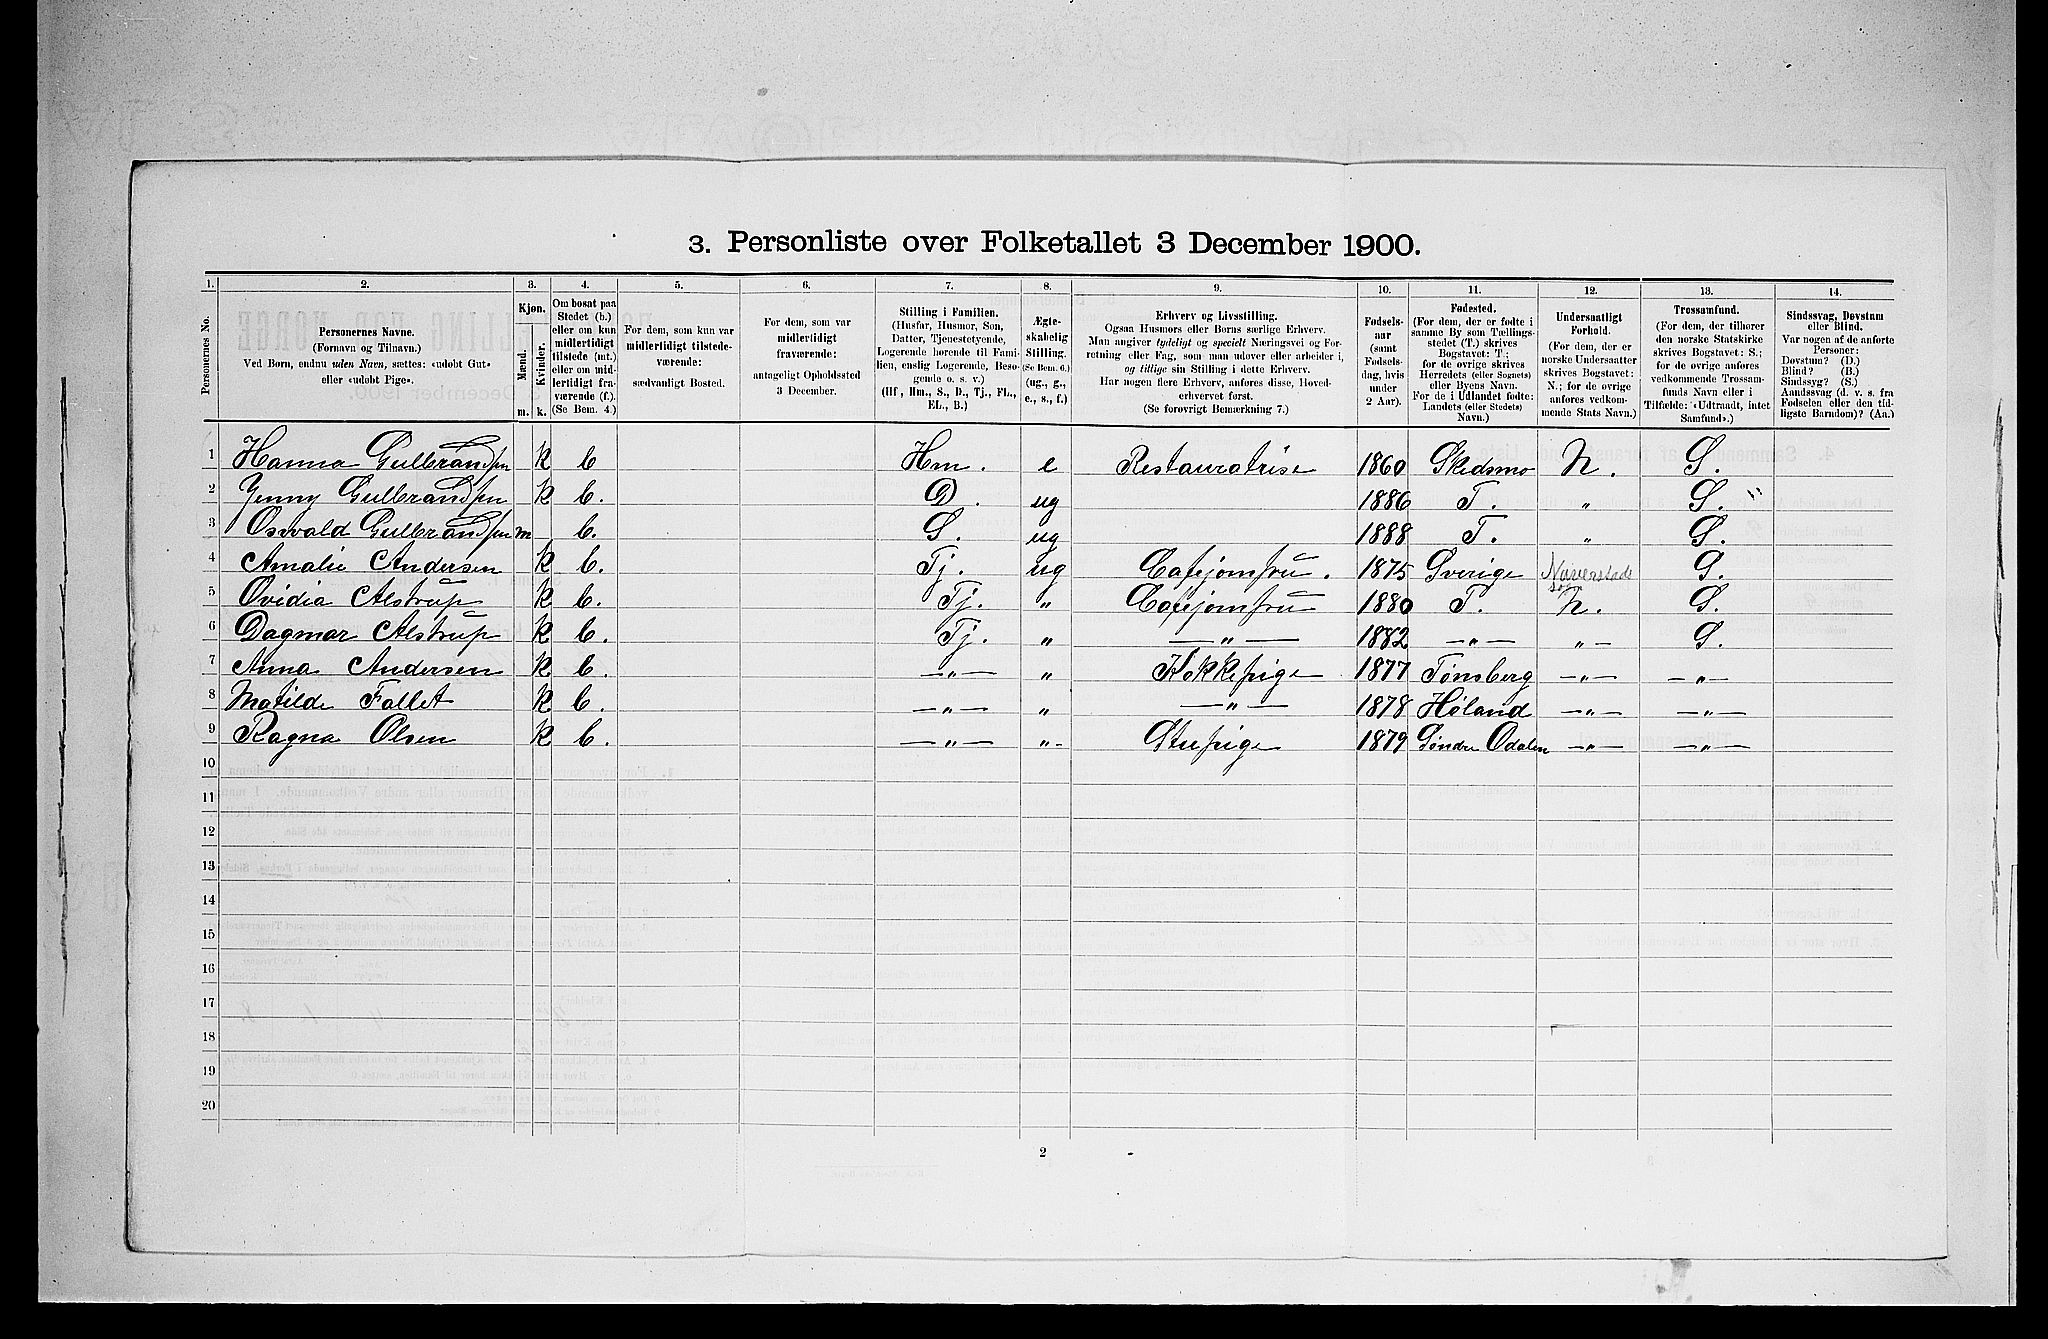 3. Personliste over Folketallet 3 December 1900.
1. 2. 3. 4. 5. 6. 7. 8. 9. 10. 11. 12. 13. 14.
Personernes No.
Personernes Navne.
(Fornavn og Tilnavn.)
Ved Børn, endnu uden Navn, sættes: «udøbt Gut»
eller «udøbt Pige».
Kjøn.
Mænd.
Kvinder.
m. k.
Om bosat paa
Stedet (b.)
eller om kun
midlertidigt
tilstede (mt.)
eller om mid-
lertidigt fra-
værende (f.).
(Se Bem. 4.)
For dem, som kun var
midlertidigt tilstede-
værende:
sædvanligt Bosted.
For dem, som var
midlertidigt
fraværende:
antageligt Opholdssted
3 December.
Stilling i Familien.
(Husfar, Husmor, Søn,
Datter, Tjenestetyende,
Logerende hørende til Fami-
lien, enslig Logerende, Besø-
gende o. s. v.)
(Hf., Hm., S., D., Tj., FL.,
EL., B.)
Ægte-
skabelig
Stilling.
(Se Bem. 6.)
(ug., g.,
e., s., f.)
Erhverv og Livsstilling.
Ogsaa Husmors eller Børns særlige Erhverv.
Man angiver tydeligt og specielt Næringsvei og For-
retning eller Fag, som man udover eller arbeider i,
og tillige sin Stilling i dette Erhverv.
Har nogen flere Erhverv, anføres disse, Hoved-
erhvervet først.
(Se forøvrigt Bemerkning 7.)
Fødsels-
aar
(samt
Fødsels-
dag, hvis
under
2 Aar).
Fødested.
(For dem, der er fødte i
samme By som Tællings-
stedet (T.) skrives
Bogstavet: T.;
for de øvrige skrives
Herredets (eller Sognets)
eller Byens Navn.
For de i Udlandet fødte:
Landets (eller Stedets)
Navn.)
Undersaatligt
Forhold.
(For dem, der er
norske Undersaatter
skrives Bogstavet:
N.; for de øvrige
anføres vedkom-
mende Stats Navn.)
Trossamfund.
(For dem, der tilhører
den norske Statskirke
skrives Bogstavet: S.;
for de øvrige anføres
vedkommende Trossam-
funds Navn eller i
Tilfælde: «Udtraadt, intet
Samfund».)
Sindssvag, Døvstum
eller Blind.
Var nogen af de anførte
Personer:
Døvstum? (D.)
Blind? (B.)
Sindssyg? (S.)
Aandssvag (d. v. s. fra
Fødselen eller den tid-
ligste Barndom)? (Aa.)
1 Hanna Gulbrandsen k b Hm. e Restauratrise 1860 Skedsmo N. S.
2 Jenny Gulbrandsen k b. D. ug 1886 T. " S. "
3 Osvald Gulbrandsen m b. S. ug 1888 T. " S.
4 Amalie Andersen k b. Tj. ug Cafejomfru. 1875 Sverige Naverstads sogn S.
5 Ovidia Alstrup k b. Tj. " Cafejomfru 1880 T. N. S.
6 Dagmar Alstrup k b. Tj. " —"— 1882 —"— "— S.
7 Anna Andersen k b. —"— " Kokkepige 1877 Tønsberg —"— —"—
8 Matilde Fallet k b. —"— " —"— 1878 Høland —"— —"—
9 Ragna Olsen k b. —"— "- Stupige 1879 Søndre Odalen —"— —"—
10
11
12
13
14
15
16
17
18
19
20
2